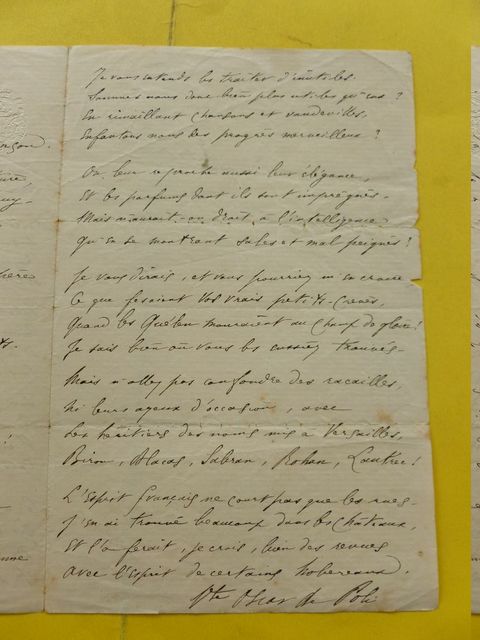 Je vous entends les traiter d'inutiles.
Sommes nous donc bien plus utiles qu'eux ?
En rimaillant chansons et vaudevilles,
Enfantons nous des progrès merveilleux ?
On leur reproche aussi leur élégance,
Et les parfums dont ils sont imprégnés.
Mais n'aurait-on droit à l'intelligence
Qu'en se montrant sales et mal peignés ?
Je vous dirais, et vous pourriez m'en croire
Ce que faisaient vos vrais petits-crevés,
Quand les Quélen mouraient au champ de gloire !
Je sais bien où vous les eussiez trouvés.
Mais n'allez pas confondre des racailles,
Ni leurs ayeux d'occasion, avec
Les héritiers des noms mis à Versailles,
Biron, Sabran, Rohan, Lautrec !
L'Esprit français ne court pas que les rues.
J'en ai trouvé beaucoup dans les châteaux,
Et l'on ferait, je crois, bien des revues
avec l'Esprit de certains hobereaux.
Vte Oscar de Poli